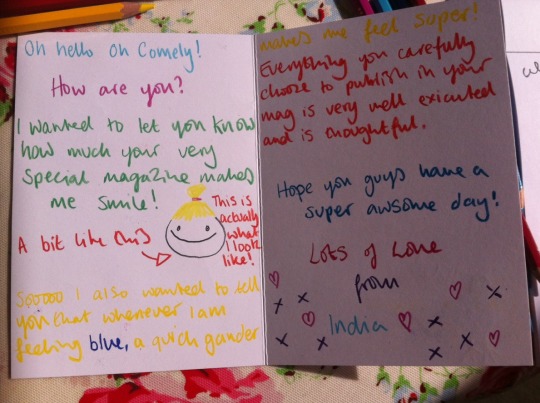 Oh hello Oh Comely!
How are you?
I wanted to let you know
how much your very
special magazine makes
me smile!
A bit like this
This is
actually
what
I look
like!
Sooooo I also wanted to tell
you that whenever I am
feeling blue, a quick gander
makes me feel super!
Everything you carefully
choose to publish in your
mag is very well exicuted
and is thoughtful.
Hope you guys have a
super awsome day!
Lots of Love
from
India